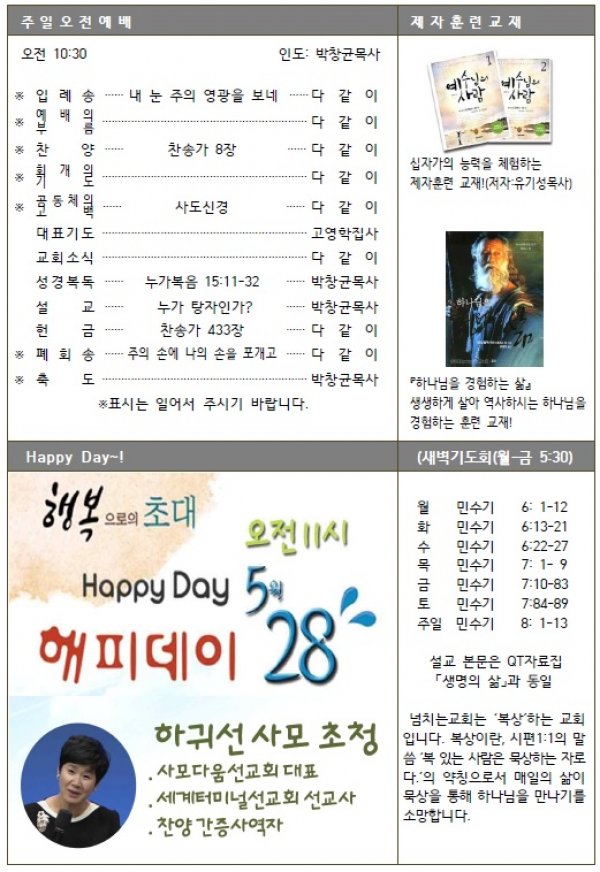 주일오전예배
오전 10:30 인도: 박창균목사
※ 입 례 송 ······ 내 눈 주의 영광을 보네 ······ 다 같 이
※ 예 배 의 부 름 ······ 다 같 이
※ 찬 양 ······ 찬송가 8장 ······ 다 같 이
※ 회 개 의 기 도 ······ 다 같 이
※ 공동체의 고 백 ······ 사도신경 ······ 다 같 이
대표기도 ······ 고영학집사
교회소식 ······ 다 같 이
성경복독 ······ 누가복음 15:11-32 ······ 박창균목사
설 교 ······ 누가 탕자인가? ······ 박창균목사
헌 금 ······ 찬송가 433장 ······ 다 같 이
※ 폐 회 송 ······ 주의 손에 나의 손을 포개고 ······ 다 같 이
※ 축 도 ······ 박창균목사
※표시는 일어서 주시기 바랍니다.
제자훈련교재
예수님의 사람 1
예수님의 사람 2
십자가의 능력을 체험하는
제자훈련 교재!(저자:유기성목사)
하나님을
삶
『하나님을 경험하는 삶』
생생하게 살아 역사하시는 하나님을
경험하는 훈련 교재!
Happy Day~!
행복으로의 초대
오전 11시
Happy Day 5월
28
해피데이
하귀선 사모 초청
. 사모다움선교회 대표
. 세계터미널선교회 선교사
. 찬양 간증사역자
(새벽기도회(월-금 5:30)
월 민수기 6: 1-12
화 민수기 6:13-21
수 민수기 6:22-27
목 민수기 7: 1- 9
금 민수기 7:10-83
토 민수기 7:84-89
주일 민수기 8: 1-13
설교 본문은 QT자료집
「생명의 삶」과 동일
넘치는교회는 '복상'하는 교회
입니다. 복상이란, 시편1:1의 말
씀 '복 있는 사람은 묵상하는 자로
다.'의 약칭으로서 매일의 삶이
묵상을 통해 하나님을 만나기를
소망합니다.